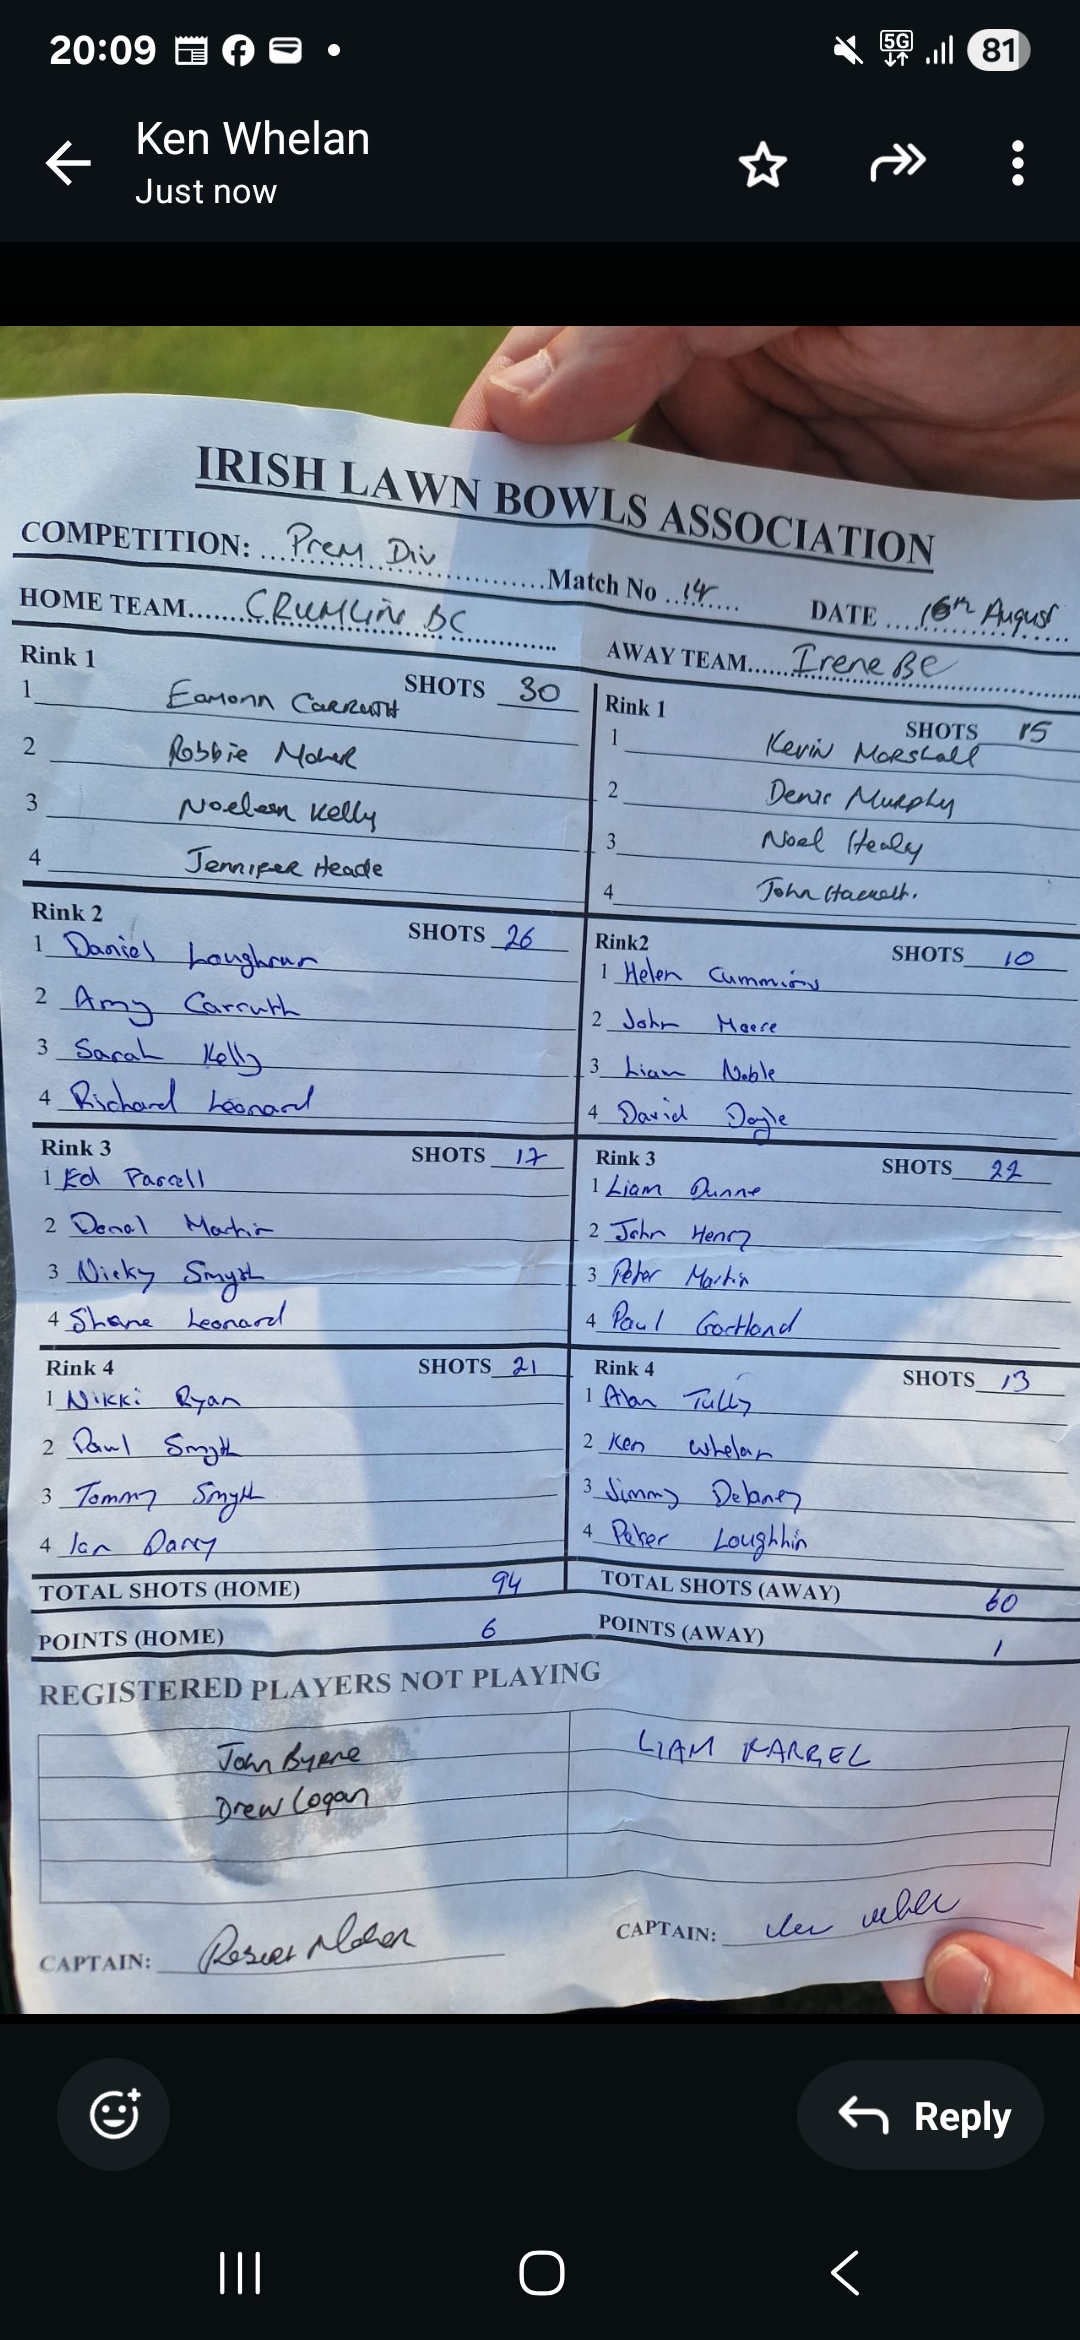 20:09
5G
81
Ken Whelan
Just now
IRISH LAWN BOWLS ASSOCIATION
COMPETITION: Prem Div Match No 14 DATE 16th August
HOME TEAM CRUMLIN BC AWAY TEAM Irene BC
Rink 1 SHOTS 30
1 Eamonn CARRUTH
2 Robbie Maher
3 Noeleen Kelly
4 Jennifer Heade
Rink 1 SHOTS 15
1 Kevin Marshall
2 Denis Murphy
3 Noel Healy
4 John
Rink 2 SHOTS 26
1 Daniel Loughran
2 Amy Carruth
3 Sarah Kelly
4 Richard Leonard
Rink2 SHOTS 10
1 Helen Cummins
2 John Meere
3 Liam Noble
4 David Doyle
Rink 3 SHOTS 17
1 Ed Parcell
2 Donal Martin
3 Nicky Smyth
4 Shane Leonard
Rink 3 SHOTS 22
1 Liam Dunne
2 John Henry
3 Peter Martin
4 Paul Gartland
Rink 4 SHOTS 21
1 Nikki Ryan
2 Paul Smyth
3 Tommy Smyth
4 Ian Darcy
Rink 4 SHOTS 13
1 Alan Tully
2 Ken Whelan
3 Jimmy Delaney
4 Peter Loughlin
TOTAL SHOTS (HOME) 94 TOTAL SHOTS (AWAY) 60
POINTS (HOME) 6 POINTS (AWAY) 1
REGISTERED PLAYERS NOT PLAYING
John Byrne LIAM FARREL
Drew Logan
CAPTAIN: Maher CAPTAIN:
Reply